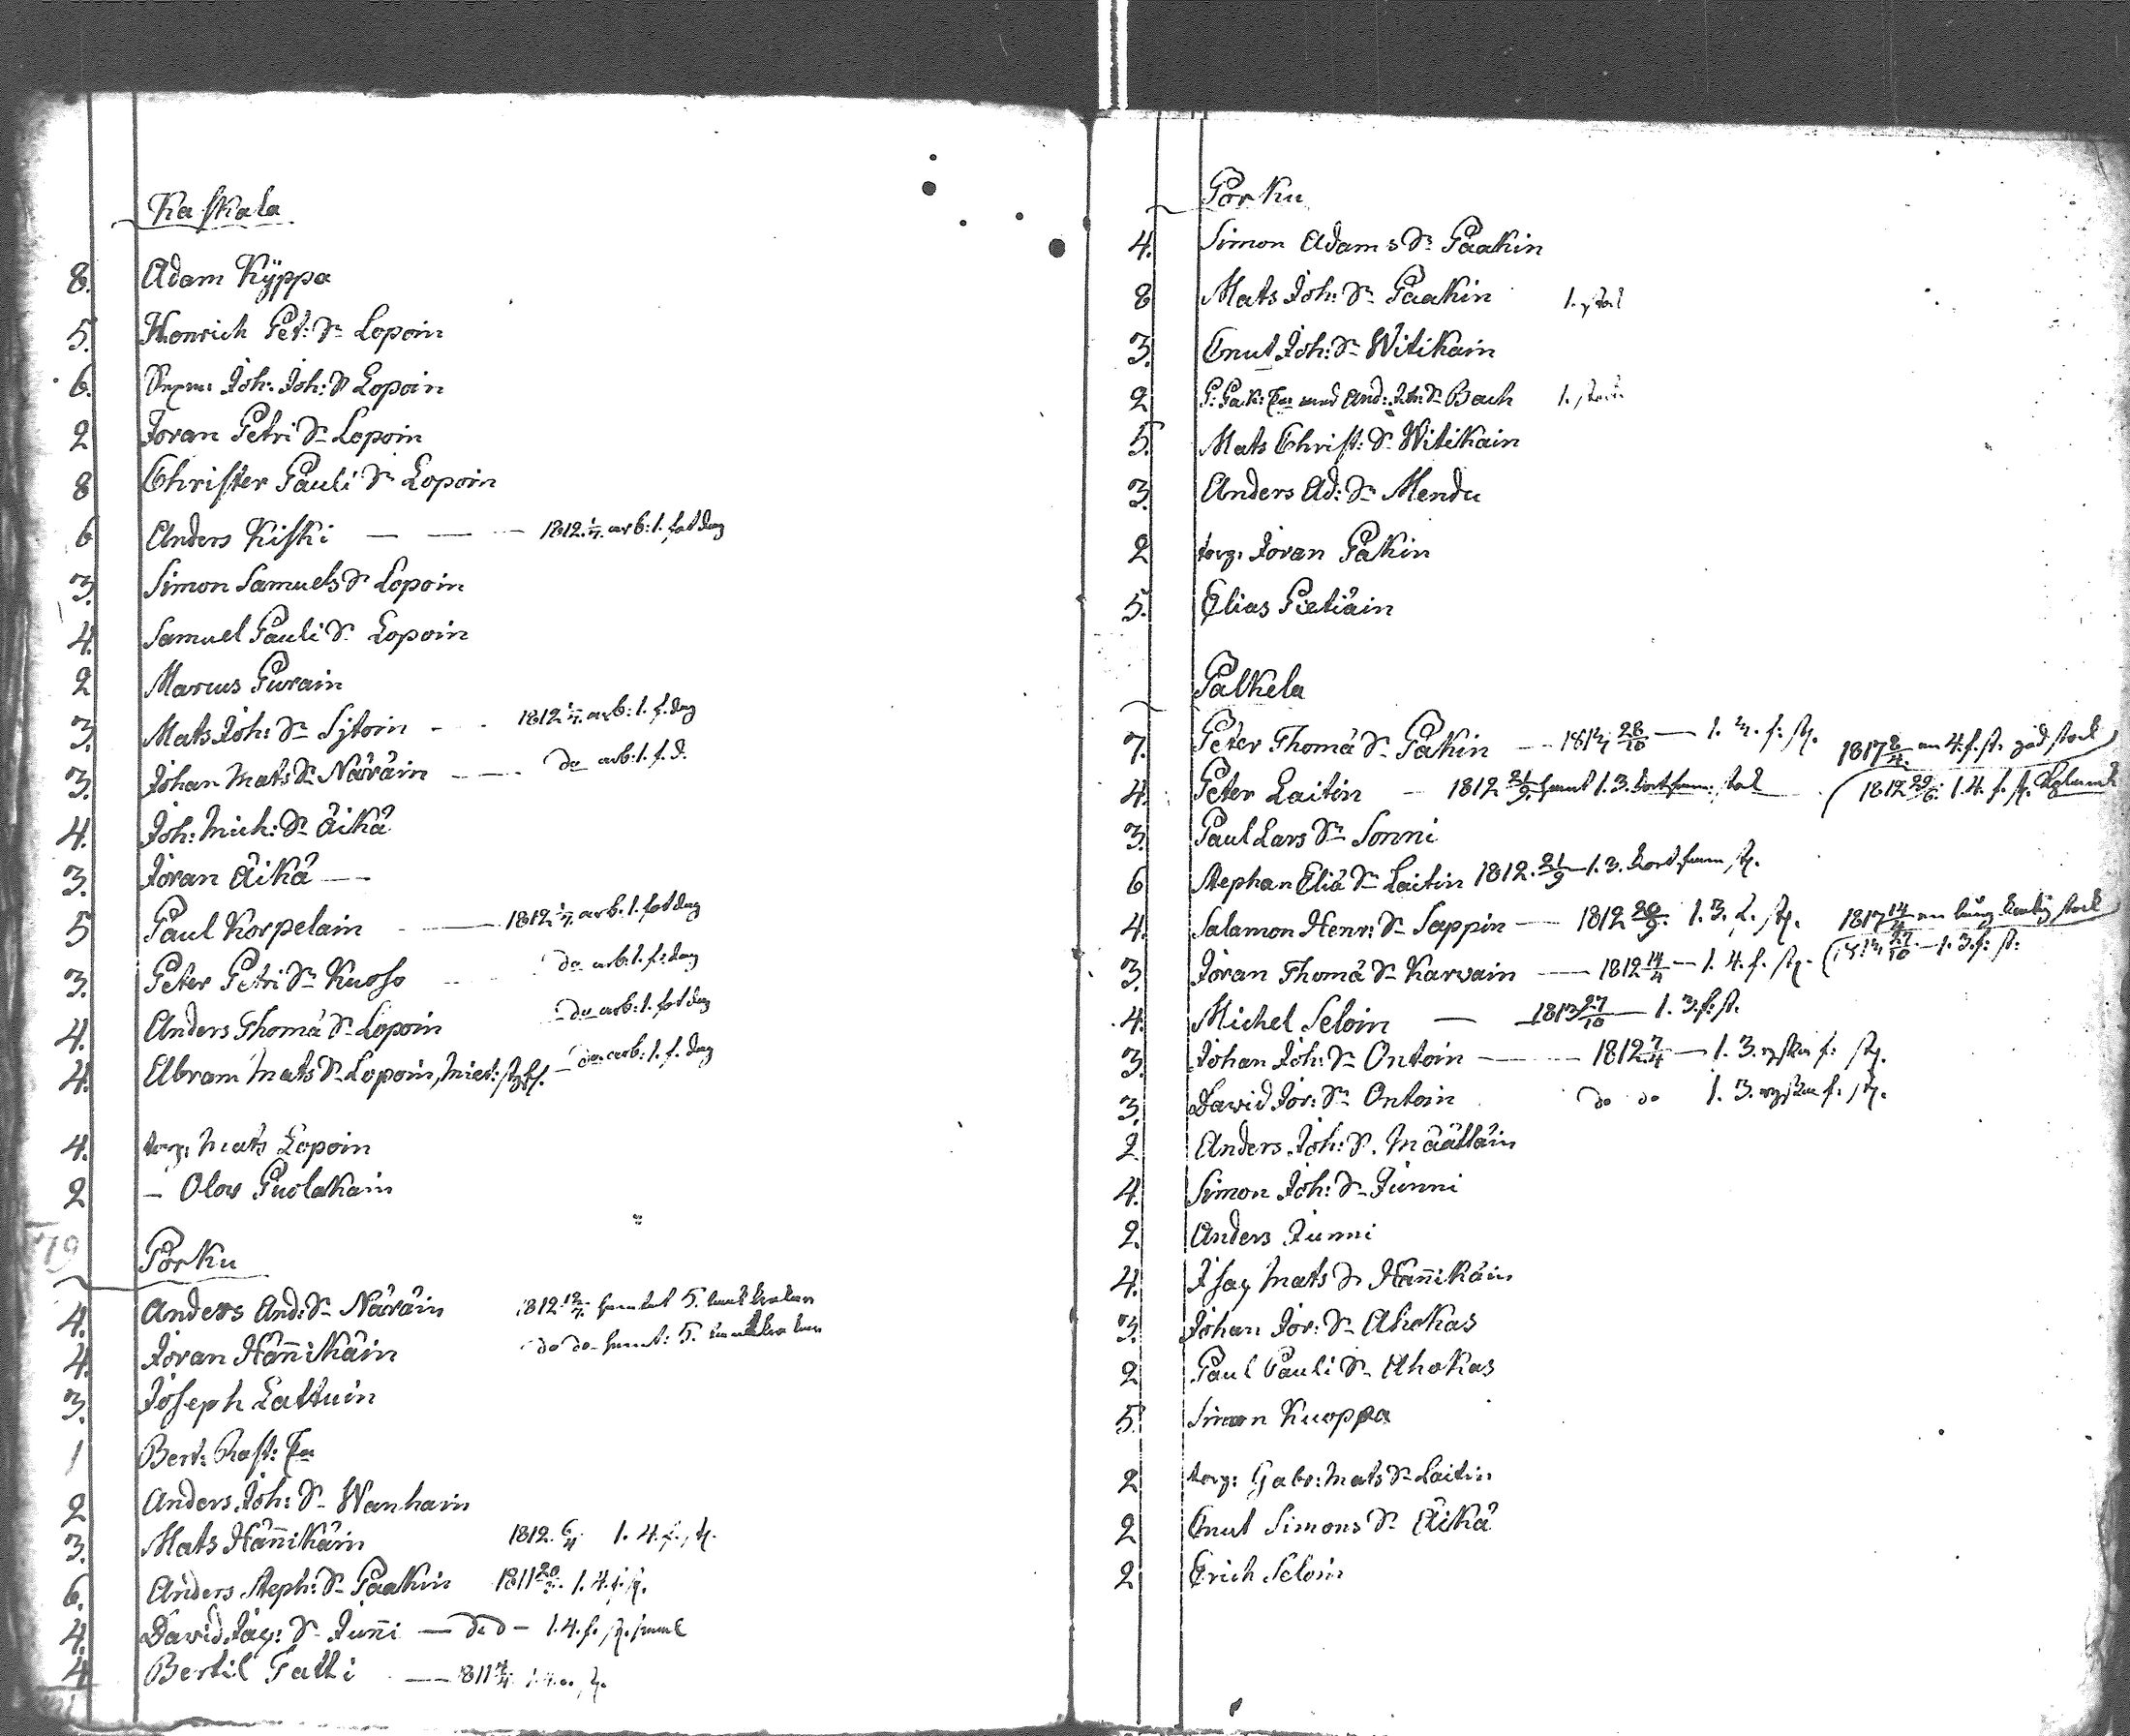 Kaskala
8. Adam Kÿppa
5. Henrich Pet: Sn Lopoin
6. Joh: Joh: Sn Lopoin
2 Jöran Petri Sn Lopoin
8 Christer Pauli Sn Lopoin
6 Anders Kiski — — — 1812. 1/7. arb: 1. fot dag
3. Simon Samuels Sn Lopoin
4. Samuel Pauli Sn Lopoin
2 Marcus Purain
3. Mats Joh: Sn Sÿtoin - - 1812 1/7. arb: 1. f. dag
3. Johan Mats Sn Näräin - - - do arb: 1. f. d.
4. Joh: Mich: Sn Äikä
3. Jöran Äikä — -
5 Paul Korpelain - — 1812 1/7 arb. 1. fot dag
3. Peter Petri Sn Kuoso - - do arb: 1. f: dag
4. Anders Thomä Sn Lopoin - do arb: 1. fot dag
4. Abram Mats Sn Lopoin, - do arb: 1. f. dag
4. torp: Mats Lopoin
2 — Olov Puolakain
79
Porku
4. Anders And: Sn Näräin 1812 12/7 hemtat 5.
4. Jöran Hän̄ikäin do do hemt: 5.
3. Joseph Lattuin
1 Bert: Rast:
2 Anders Joh: Sn Wanhain
3. Mats Hän̄ikäin 1812. 6/4 1. 4. f. st.
6. Anders Steph: Sn Paakin 1811 20/ 1. 4. f. st.
4. David Jag: Sn Jun̄i — do — 1. 4. f. st.
4 Bertil Tatti — 1811
Porku
4. Simon Adams Sn Paakin
8 Mats Joh: Sn Paakin 1. stok
3. Cnut Joh: Sn Witikain
2 And: Joh: Sn Bach 1. stok
5. Mats Christ: Sn Witikain
3. Anders Ad: Sn Mendu
2 torp: Jöran Pakin
5. Elias Pietiäin
Palkela
7. Peter Thomä Sn Päkin — 1813 28/10 — 1. 3. f: st. 1817 8/4. en 4. f. st. god stock
4. Peter Laitin - 1812 21/9. hemt 1. 3. stok 1812 29/6. 1. 4. f. st.
3. Paul Lars Sn Sonni
6 Stephan Eliä Sn Laitin 1812. 21/9 — 1. 3. st.
4. Salamon Henr: Sn Seppin — 1812 1. 3. f. st. 1817 14/4 en stock
3. Jöran Thomä Sn Karvain — 1812 14/4 — 1. 4. f. st. 1813 27/10 — 1. 3. f: st:
4. Michel Seloin — 1813 27/10 — 1. 3. f: st.
3. Johan Joh: Sn Ontoin — 1812 7/4 — 1. 3. ryska f: st.
3. David Jör: Sn Ontoin do do 1. 3. ryska f: st.
2 Anders Joh: Sn Määttäin
4. Simon Joh: Sn Junni
2. Anders Junni
4. Isac Mats Sn Hän̄ikäin
3. Johan Jör: Sn Ahokas
2 Paul Pauli Sn Ahokas
5 Simon Kuoppa
2 torp: Gabr: Mats Sn Laitin
2 Cnut Simons Sn Äikä
2 Erich Seloin